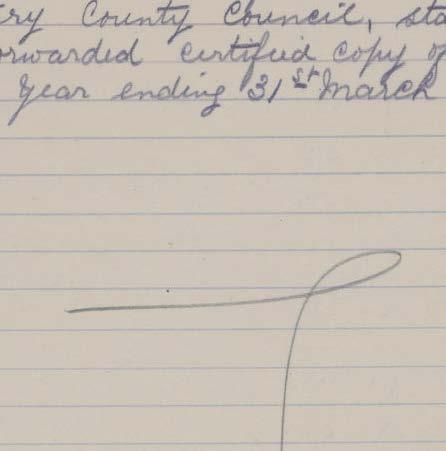 ry County Council, sta
orwarded certified copy of
Year ending 31st March